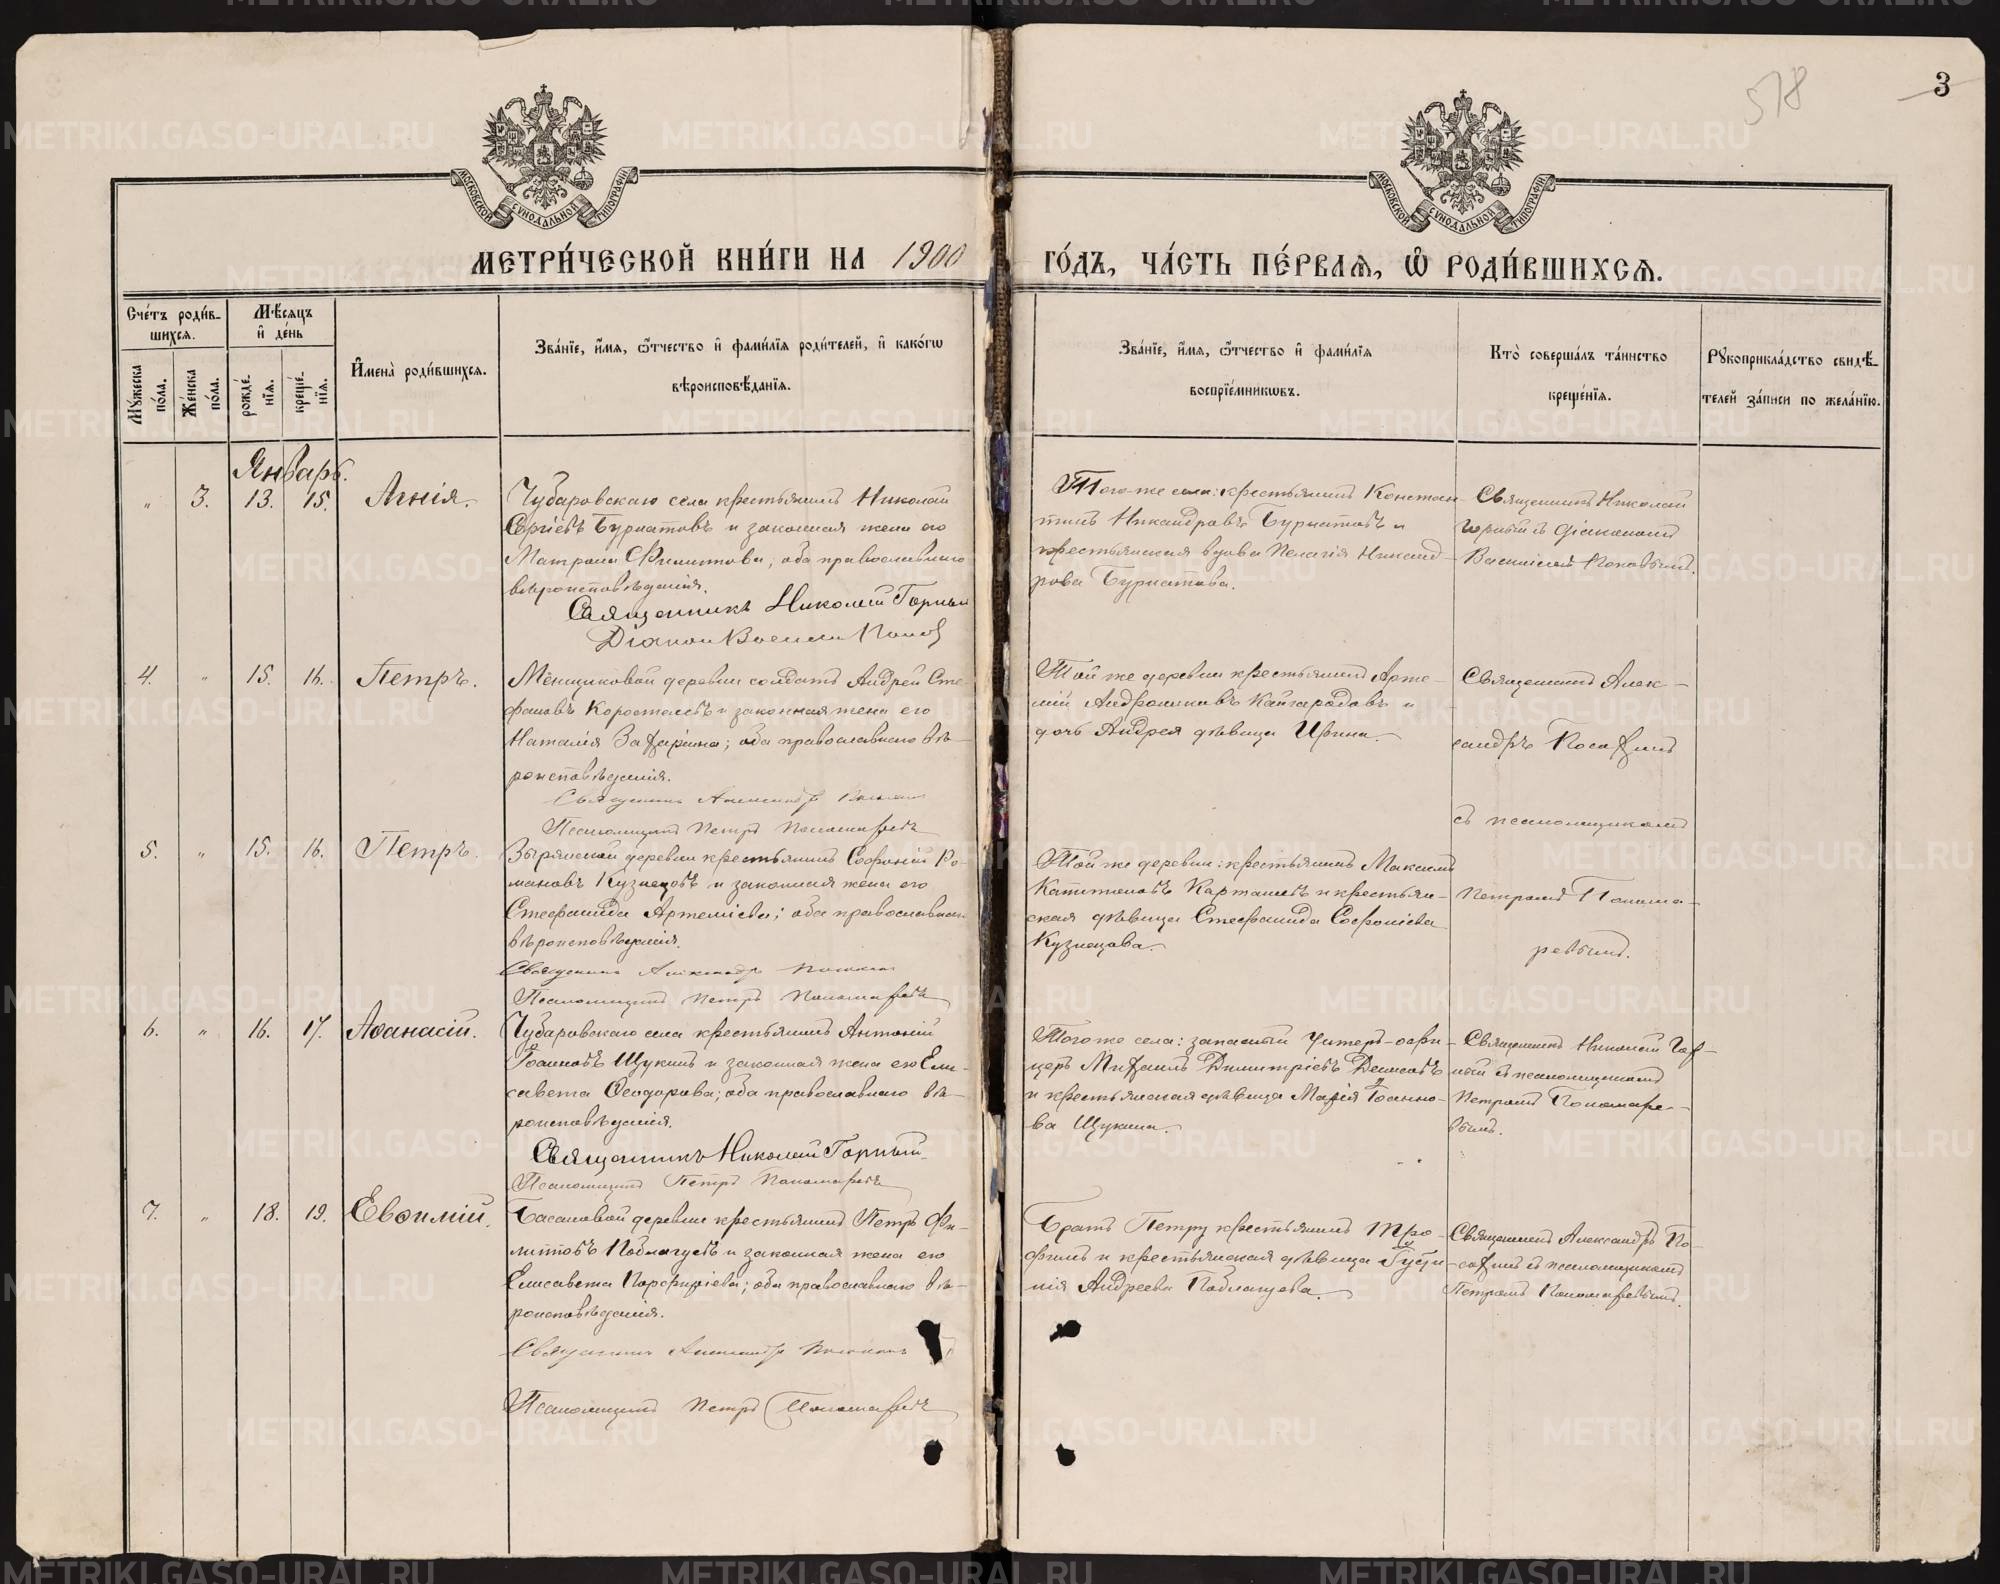 578
3
МОСКОВСКОЙ СѴНОДАЛЬНОЙ ТИПОГРАФІИ
МОСКОВСКОЙ СѴНОДАЛЬНОЙ ТИПОГРАФІИ
МЕТРИ́ЧЕСКОЙ КНИ́ГИ НА 1900
ГО́ДЪ, ЧА́СТЬ ПЕ́РВАѦ, Ѡ҆ РОДИ́ВШИХСѦ.
Сче́тъ роди́в-
шихсѧ.
Мѣ́сѧцъ
и҆ де́нь
Мꙋ́жеска
по́ла.
Же́нска
по́ла.
рожде́-
нїѧ.
креще́-
нїѧ.
И҆мена̀ роди́вшихсѧ.
Зва́нїе, и҆́мѧ, ѻ҆́тчество и҆ фами́лїѧ роди́телей, и҆ како́гѡ
вѣроисповѣ́данїѧ.
Зва́нїе, и҆́мѧ, ѻ҆́тчество и҆ фами́лїѧ
воспрїе́мникѡвъ.
Кто̀ соверша́лъ та́инство
креще́нїѧ.
Рꙋкоприкла́дство свидѣ́-
телей за́писи по жела́нїю.
Январь.
" 3. 13. 15. Агнія.
Чубаровскаго села крестьянинъ Николай
Сергіевъ Бурматовъ и законная жена его
Матрона Филиппова; оба православнаго
вѣроисповѣданія.
Священникъ Николай Горный
Діаконъ Василій Поповъ
Того же села: крестьянинъ Констан-
тинъ Никандровъ Бурматовъ и
крестьянская вдова Пелагія Никанд-
рова Бурматова.
Священникъ Николай
Горный съ діакономъ
Василіемъ Поповымъ.
4. " 15. 16. Петръ.
Менщиковой деревни солдатъ Андрей Сте-
фановъ Коростелевъ и законная жена его
Наталія Захаріина; оба православнаго вѣ-
роисповѣданія.
Священникъ Александръ
Псаломщикъ Петръ Пономаревъ
Той же деревни крестьянинъ Арте-
мій Андрониковъ Кайгородовъ и
дочь Андрея дѣвица Ирина.
Священникъ Алек-
сандръ
съ псаломщикомъ
Петромъ Понома-
ревымъ.
5. " 15. 16. Петръ.
Зырянской деревни крестьянинъ Софоній Ро-
мановъ Кузнецовъ и законная жена его
Стефанида Артеміева; оба православнаго
вѣроисповѣданія.
Священникъ Александръ
Псаломщикъ Петръ Пономаревъ
Той же деревни: крестьянинъ Максимъ
Капитоновъ Карташевъ и крестьян-
ская дѣвица Стефанида Софоніева
Кузнецова.
6. " 16. 17. Аѳанасій.
Чубаровскаго села крестьянинъ Антоній
Іоанновъ Щукинъ и законная жена его Ели-
савета Ѳеодорова; оба православнаго вѣ-
роисповѣданія.
Священникъ Николай Горный
Псаломщикъ Петръ Пономаревъ
Того же села: запасный Унтеръ-офи-
церъ Михаилъ Димитріевъ Денисовъ
и крестьянская дѣвица Марія Іоанно-
ва Щукина.
Священникъ Николай Гор-
ный съ псаломщикомъ
Петромъ Пономаре-
вымъ.
7. " 18. 19. Евѳимій.
Басановой деревни крестьянинъ Петръ Фи-
липповъ Поблагуевъ и законная жена его
Елисавета Порфиріева; оба православнаго вѣ-
роисповѣданія.
Священникъ Александръ
Псаломщикъ Петръ Пономаревъ
Братъ Петру крестьянинъ Тро-
фимъ и крестьянская дѣвица Іусти-
нія Андреева Поблагуева.
Священникъ Александръ
съ псаломщикомъ
Петромъ Пономаревымъ.
METRIKI.GASO-URAL.RU